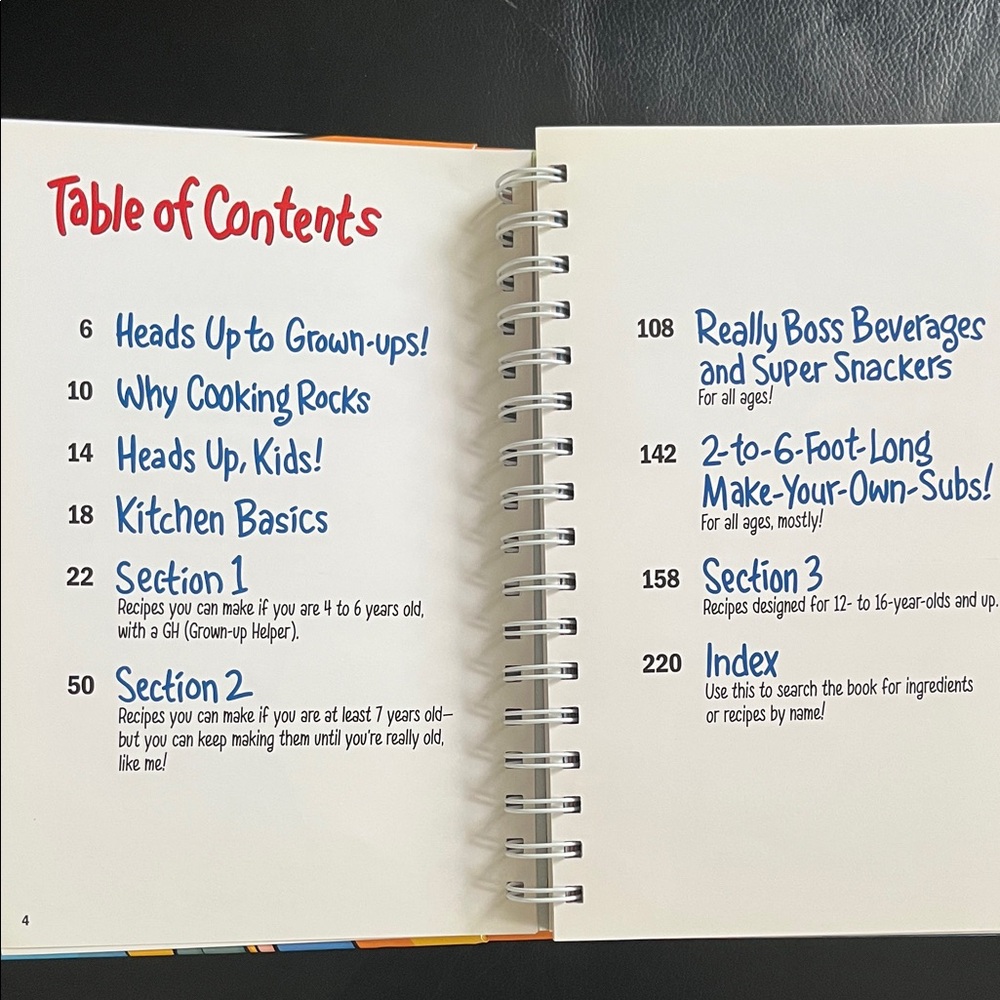 Table of Contents
6 Heads Up to Grown-ups!
10 Why Cooking Rocks
14 Heads Up, Kids!
18 Kitchen Basics
22 Section 1
Recipes you can make if you are 4 to 6 years old,
with a GH (Grown-up Helper).
50 Section 2
Recipes you can make if you are at least 7 years old—
but you can keep making them until you're really old,
like me!
4
108 Really Boss Beverages
and Super Snackers
For all ages!
142 2-to-6-Foot-Long
Make-Your-Own-Subs!
For all ages, mostly!
158 Section 3
Recipes designed for 12- to 16-year-olds and up.
220 Index
Use this to search the book for ingredients
or recipes by name!